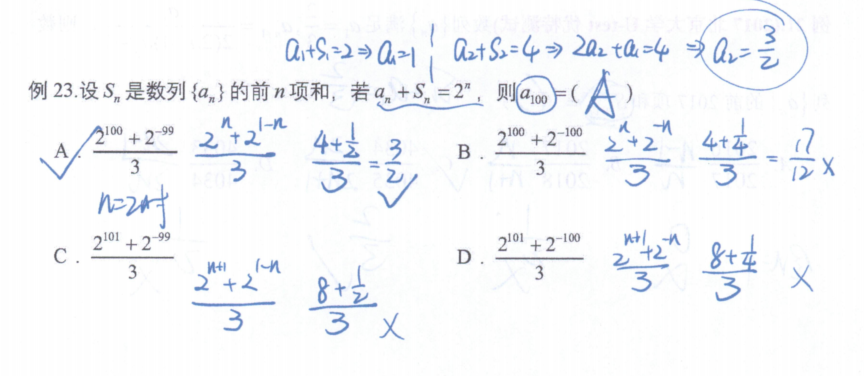 a₁+S₁=2⇒a₁=1 a₂+S₂=4⇒2a₂+a₁=4 ⇒ a₂=3/2
例 23.设 Sₙ 是数列 {aₙ} 的前 n 项和, 若 aₙ + Sₙ = 2ⁿ, 则 a₁₀₀ =( A )
A. (2¹⁰⁰ + 2⁻⁹⁹)/3 (2ⁿ+2¹⁻ⁿ)/3 (4+1/2)/3=3/2 ✓ B. (2¹⁰⁰ + 2⁻¹⁰⁰)/3 (2ⁿ+2⁻ⁿ)/3 (4+1/4)/3 17/12 x
n=2时
C. (2¹⁰¹ + 2⁻⁹⁹)/3 (2ⁿ⁺¹+2¹⁻ⁿ)/3 (8+1/2)/3 x D. (2¹⁰¹ + 2⁻¹⁰⁰)/3 (2ⁿ⁺¹+2⁻ⁿ)/3 (8+1/4)/3 x